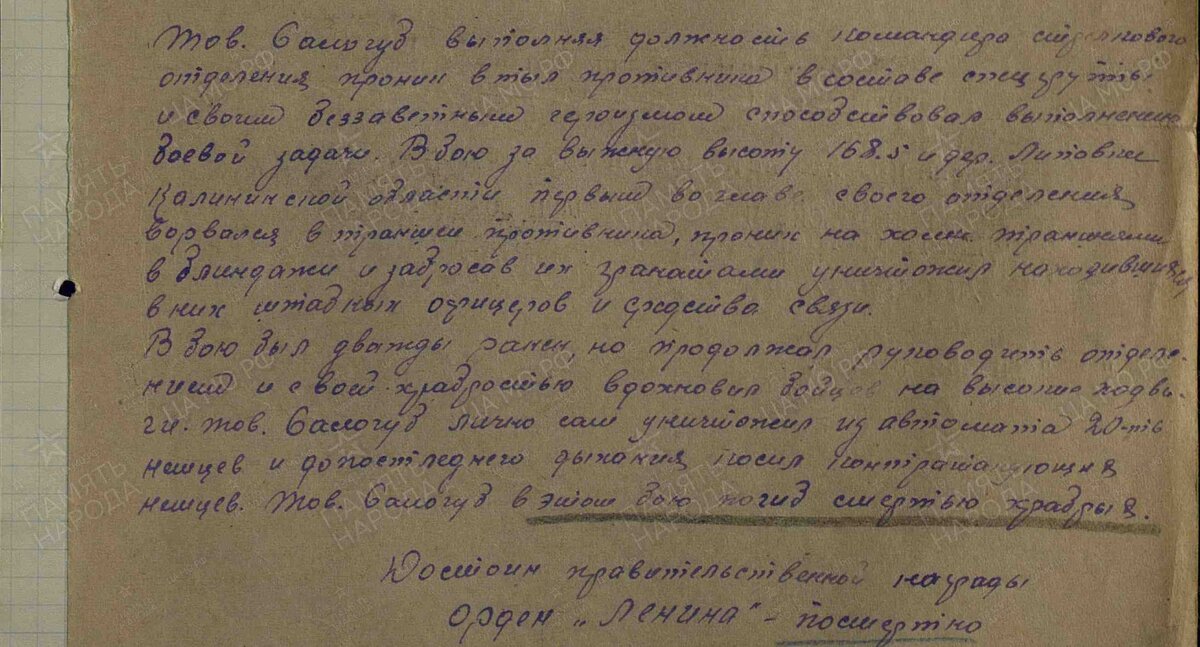 Тов. Салогуб выполняя должность командира стрелкового
отделения проник в тыл противника в составе спецгруппы
и своим беззаветным героизмом способствовал выполнению
боевой задачи. В бою за выжную высоту 168.5 и дер. Литовки
Калининской области первым во главе своего отделения
ворвался в траншеи противника, проник на
в блиндажи и забросав их гранатами уничтожил находившихся
в них штабных офицеров и средства связи.
В бою был дважды ранен, но продолжал руководить отделе-
нием и с вой храбростью вдохновил бойцов на высокие подви-
ги. тов. Салогуб лично сам уничтожил из автомата 20-ть
немцев и до последнего дыхания косил контратакующих
немцев. Тов. Салогуб в этом бою погиб смертью храбрых.
Достоин правительственной награды
Орден „Ленина" - посмертно
ПАМЯТЬ НАРОДА